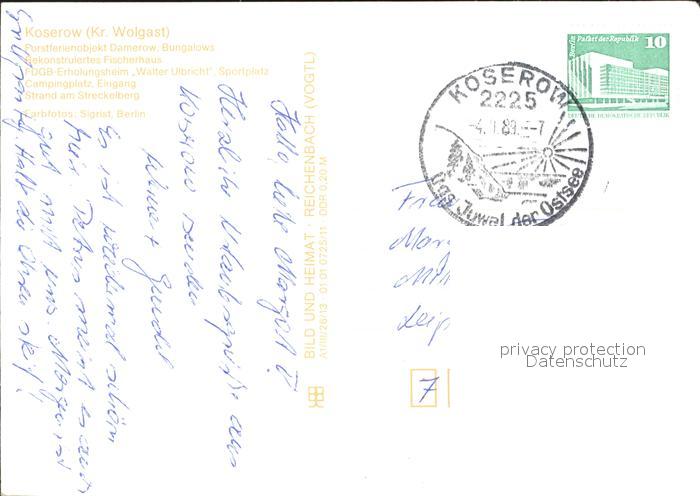 Koserow (Kr. Wolgast)
Forstferienobjekt Damerow, Bungalows
Rekonstruiertes Fischerhaus
FDGB-Erholungsheim „Walter Ulbricht", Sportplatz
Campingplatz, Eingang
Strand am Streckelberg
Farbfotos: Sigrist, Berlin
Hallo, liebe Margot!
Herzliche Urlaubsgrüße aus
Koserow senden
Gundel
Es ist wiedermal schön
hier. Petrus meint es auch
gut mit uns. Morgen ist
Halt die Ohren steif!
BILD UND HEIMAT · REICHENBACH (VOGTL)
A1/III/26/13 01 01 0725/11 DDR 0,20 M
KOSEROW
2225
89
-7
Das Juwel der Ostsee
Berlin Palast der Republik
10
DEUTSCHE DEMOKRATISCHE REPUBLIK
Leip
7
privacy protection
Datenschutz